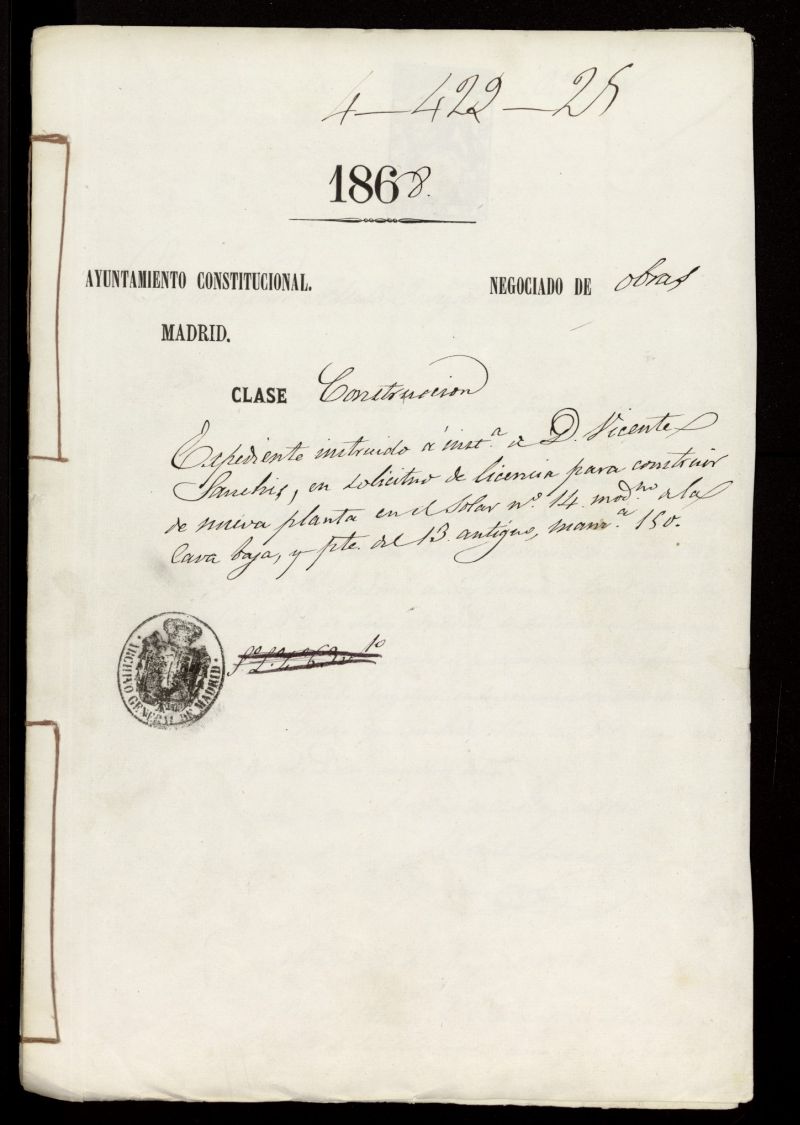 4-422-25
1868.
AYUNTAMIENTO CONSTITUCIONAL. NEGOCIADO DE obras
MADRID.
CLASE Construccion
Expediente instruido á inst.ª de D. Vicente
Sanchis, en solicitud de licencia para construir
de nueva planta en el solar nº. 14. mod.no de la
Cava baja, y pte. del 13. antiguo, manz.ª 150.
ARCHIVO GENERAL DE MADRID.